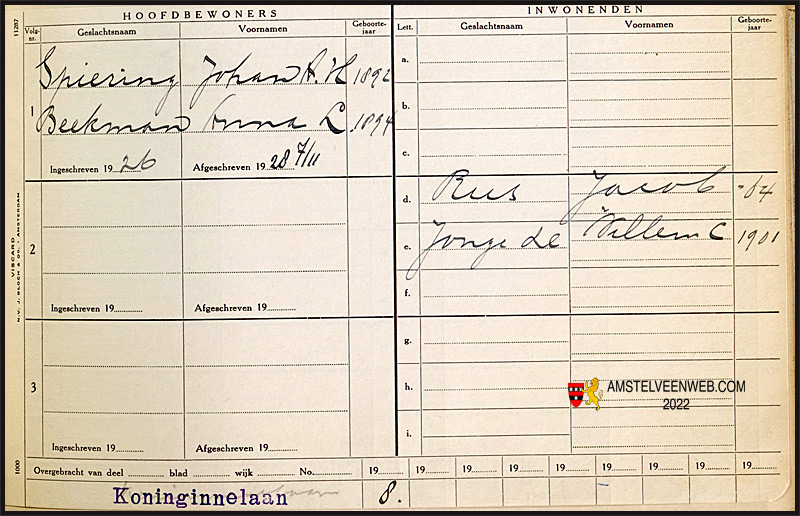 HOOFDBEWONERS
Volg-nr. Geslachtsnaam Voornamen Geboorte-jaar
1 Spiering Johan A. H 1892
Beekman Anna L 1894
Ingeschreven 19 26 Afgeschreven 19 28 7/11
2
Ingeschreven 19 Afgeschreven 19
3
Ingeschreven 19 Afgeschreven 19
INWONENDEN
Lett. Geslachtsnaam Voornamen Geboorte-jaar
a.
b.
c.
d. Rus Jacob
e. Jonge de Willem C 1901
f.
g.
h.
i.
Overgebracht van deel blad wijk No. 19 19 19 19 19 19 19 19 19
Koninginnelaan 8.
11287
VISCARD
N.V. J. BLOCH & CO. - AMSTERDAM
1000
AMSTELVEENWEB.COM
2022